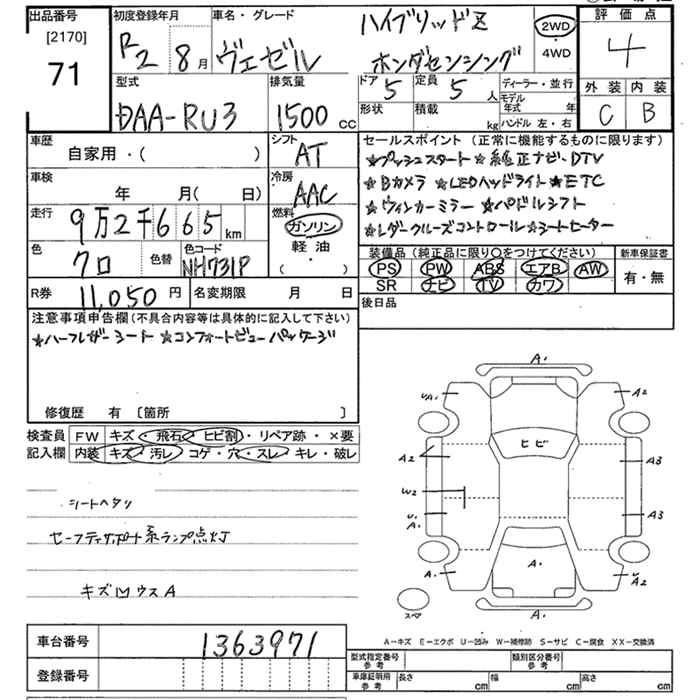 出品番号 初度登録年月 車名・グレード ハイブリッドZ 2WD 評価点
[2170] R2 8月 ヴェゼル ホンダセンシング ・4WD 4
71
型式 排気量 ドア 5 定員 5人 ディーラー・並行 外装 内装
DAA-RU3 1500cc 形状 積載 kg モデル年式 年 C B
ハンドル 左・右
車歴 自家用・( ) シフト AT セールスポイント (正常に機能するものに限ります)
★プッシュスタート ☆純正ナビ・DTV
車検 年 月( 日) 冷房 AAC ★Bカメラ ★LEDヘッドライト★ETC
走行 9万2千665km 燃料 ガソリン ★ウィンカーミラー ★パドルシフト
軽油 ★レダークルーズコントロール★シートヒーター
( ・ )
色 クロ 色替 色コード NH731P 装備品 (純正品に限り○をつけてください) 新車保証書
PS PW ABS エアB AW 有・無
SR ナビ TV カワ
R券 11,050円 名変期限 月 日 後日品
注意事項申告欄(不具合内容等は具体的に記入して下さい)
★ハーフレザーシート ☆コンフォートビューパッケージ
修復歴 有 〔箇所 〕
検査員 FW キズ・飛石・ヒビ割・リペア跡・×要
記入欄 内装 キズ・汚レ・コゲ・穴・スレ・キレ・破レ
シートヘタリ
セーフティサポート系ランプ点灯
キズ凹ウスA
A・
UA・ A2
ヒビ
A2 A3
W2
U・ A・ A3
A・ A・ U A2
スペア A・
A−キズ E−エクボ U−凹み W−補修跡 S−サビ C−腐食 XX−交換済
車台番号 1363971 型式指定番号 参考 類別区分番号 参考
登録番号 車庫証明用 参考 長さ cm 幅 cm 高さ cm